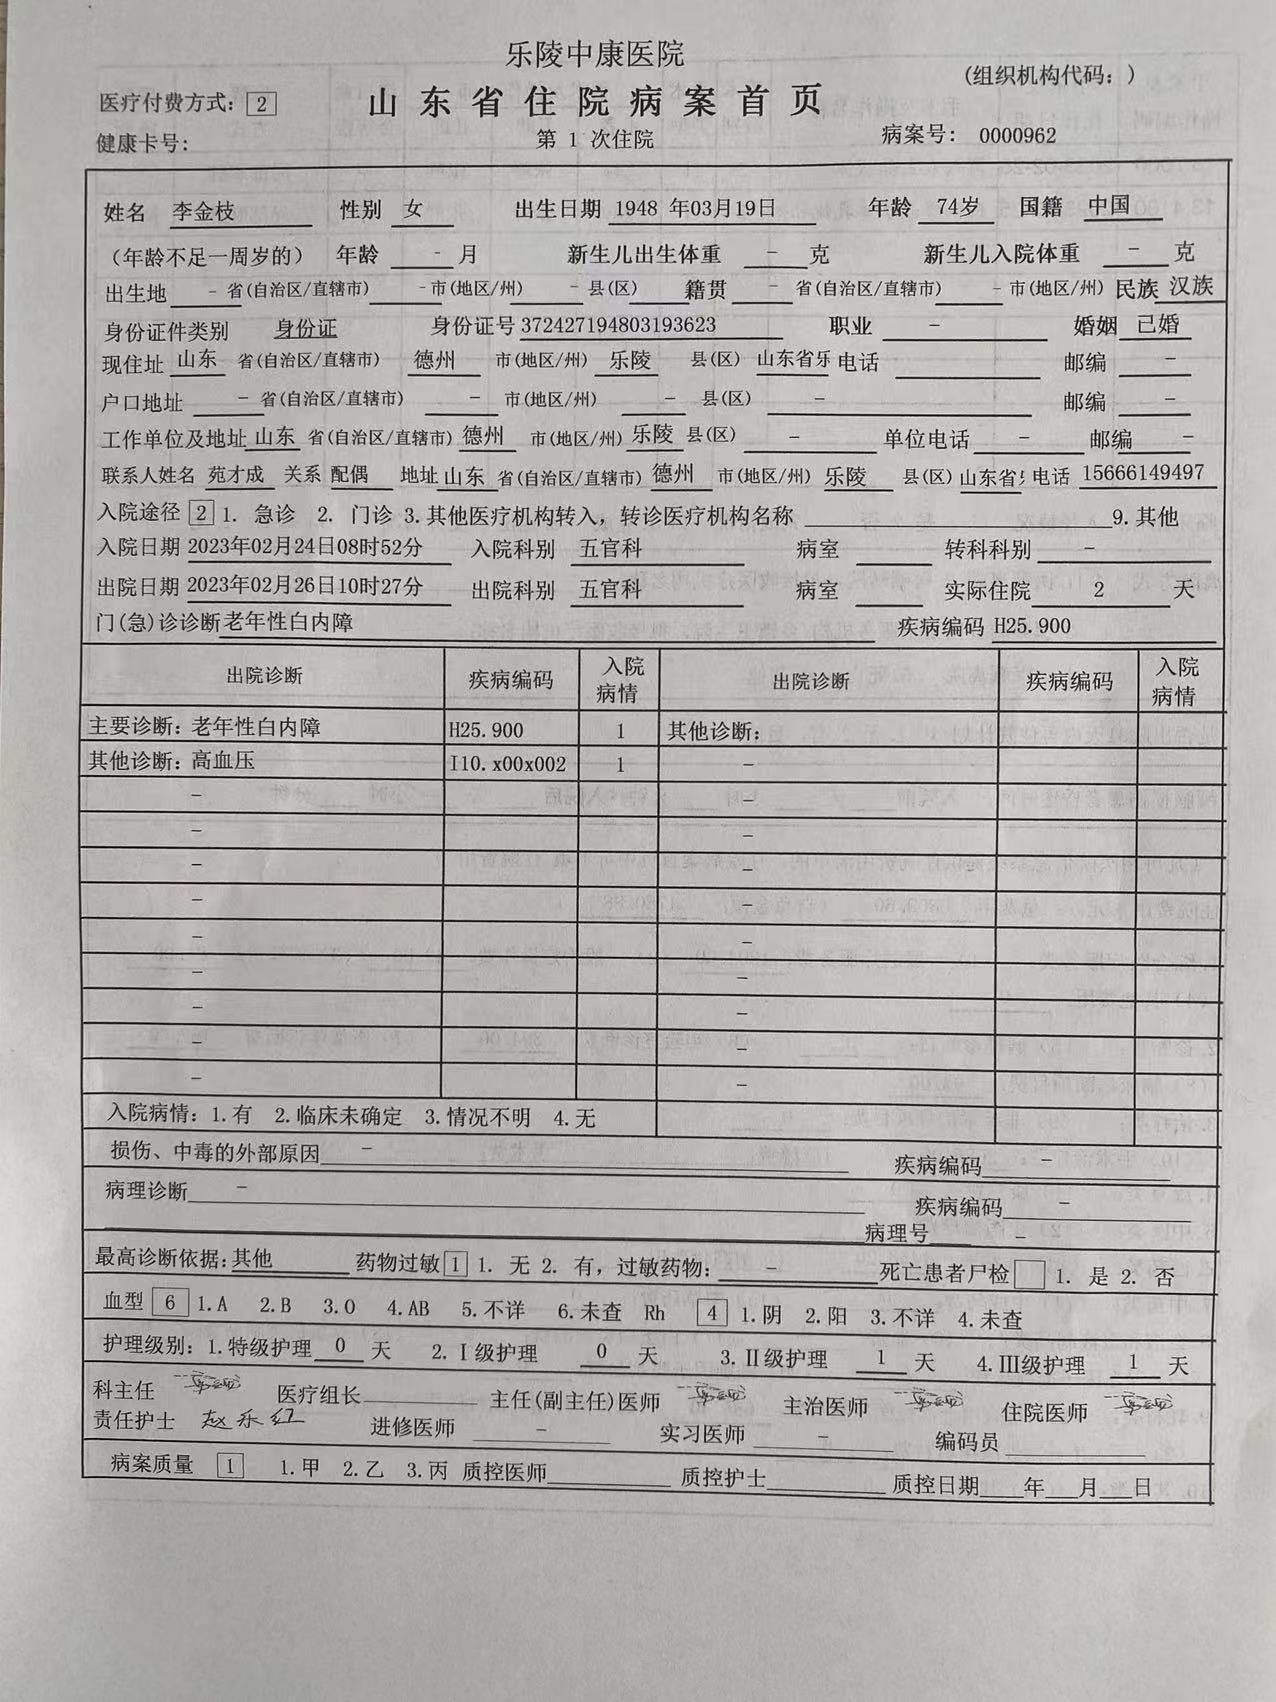 乐陵中康医院
(组织机构代码: )
医疗付费方式: 2 山东省住院病案首页
健康卡号: 第 1 次住院 病案号: 0000962
姓名 李金枝 性别 女 出生日期 1948 年03月19日 年龄 74岁 国籍 中国
(年龄不足一周岁的) 年龄 - 月 新生儿出生体重 - 克 新生儿入院体重 - 克
出生地 - 省(自治区/直辖市) - 市(地区/州) - 县(区) 籍贯 - 省(自治区/直辖市) - 市(地区/州) 民族 汉族
身份证件类别 身份证 身份证号 372427194803193623 职业 - 婚姻 已婚
现住址 山东 省(自治区/直辖市) 德州 市(地区/州) 乐陵 县(区) 山东省乐 电话 邮编 -
户口地址 - 省(自治区/直辖市) - 市(地区/州) - 县(区) - 邮编 -
工作单位及地址 山东 省(自治区/直辖市) 德州 市(地区/州) 乐陵 县(区) - 单位电话 - 邮编 -
联系人姓名 苑才成 关系 配偶 地址 山东 省(自治区/直辖市) 德州 市(地区/州) 乐陵 县(区) 山东省 电话 15666149497
入院途径 2 1. 急诊 2. 门诊 3.其他医疗机构转入, 转诊医疗机构名称 9.其他
入院日期 2023年02月24日08时52分 入院科别 五官科 病室 转科科别 -
出院日期 2023年02月26日10时27分 出院科别 五官科 病室 实际住院 2 天
门(急)诊诊断 老年性白内障 疾病编码 H25.900
出院诊断 疾病编码 入院病情 出院诊断 疾病编码 入院病情
主要诊断: 老年性白内障 H25.900 1 其他诊断:
其他诊断: 高血压 I10.x00x002 1 -
- -
- -
- -
- -
- -
- -
- -
- -
- -
入院病情: 1.有 2.临床未确定 3.情况不明 4.无
损伤、中毒的外部原因 - 疾病编码 -
病理诊断 - 疾病编码 -
病理号 -
最高诊断依据: 其他 药物过敏 1 1. 无 2. 有, 过敏药物: - 死亡患者尸检 1. 是 2. 否
血型 6 1.A 2.B 3.O 4.AB 5.不详 6.未查 Rh 4 1.阴 2.阳 3.不详 4.未查
护理级别: 1.特级护理 0 天 2.Ⅰ级护理 0 天 3.Ⅱ级护理 1 天 4.Ⅲ级护理 1 天
科主任 医疗组长 主任(副主任)医师 主治医师 住院医师
责任护士 赵乐红 进修医师 - 实习医师 - 编码员
病案质量 1 1.甲 2.乙 3.丙 质控医师 质控护士 质控日期 年 月 日